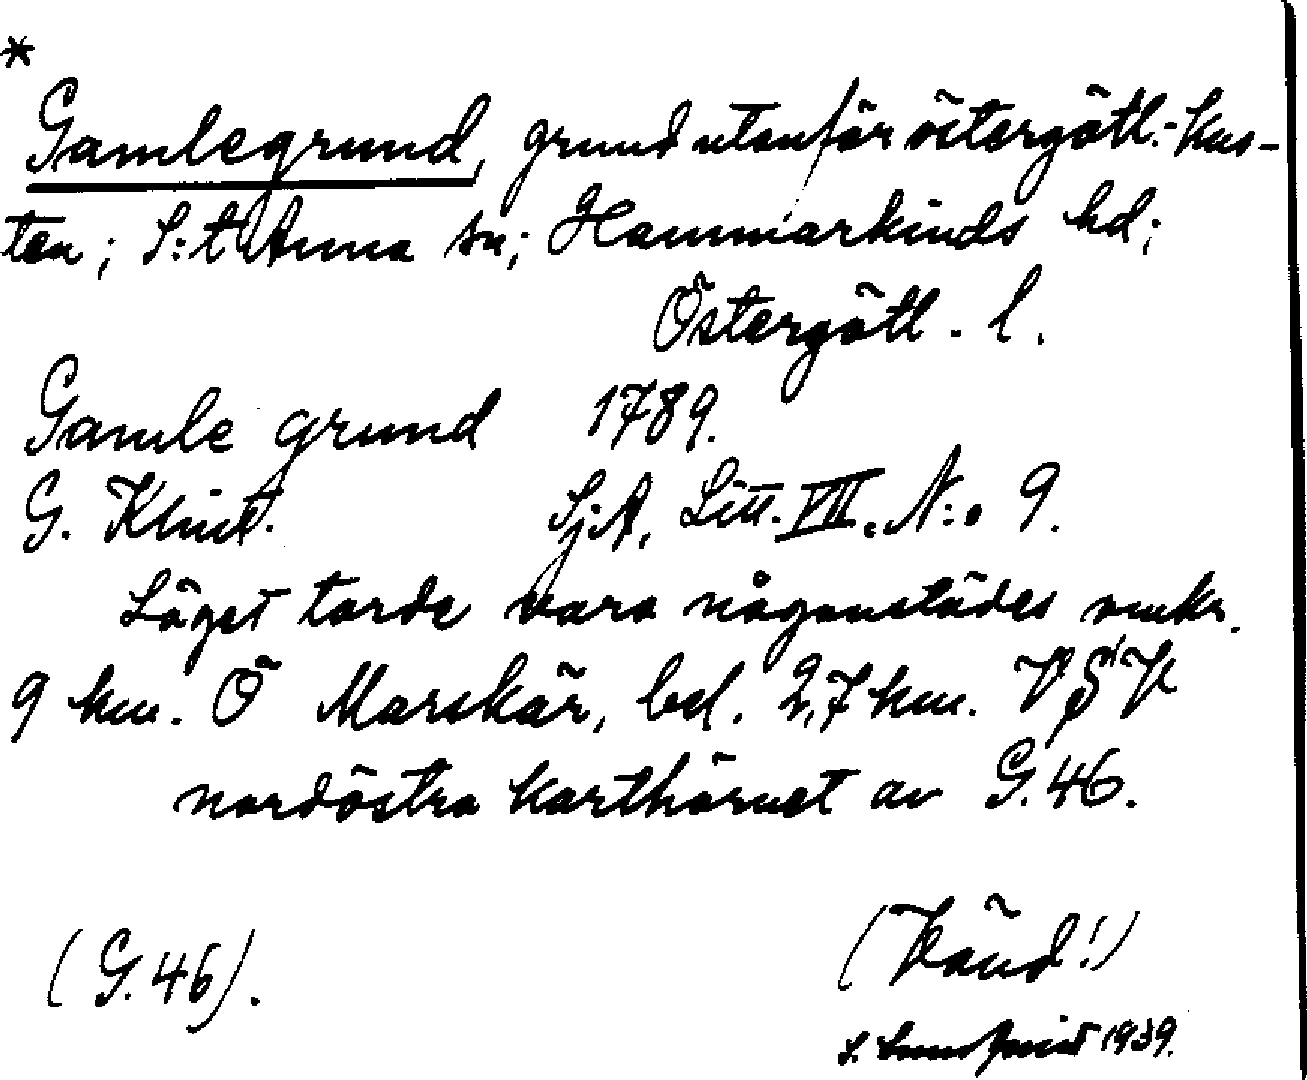 *
Gamlegrund, grund utanför östergötl.-kus-
ten; S:t Anna sn; Hammarkinds hd;
Östergötl. l.
Gamle grund 1789.
G. Klint. SjA, Litt. VII. N:o 9.
Läget torde vara någonstädes omkr.
9 km. Ö Marskär, bel. 2,7 km. V
nordöstra karthörnet av G. 46.
(G. 46). (Vänd!)
S. 1939.